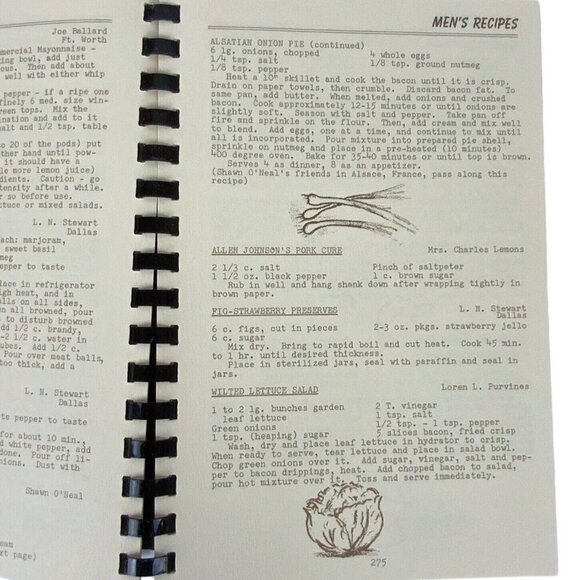 Joe Ballard
Ft. Worth
mmercial Mayonnaise -
ing bowl, add just
ous. Then add about
well with either whip
pepper - if a ripe one
finely 6 med. size win-
reen tops. Mix the
ination and add to it
salt and 1/2 tsp. table
to 20 of the pods) put
other hand until pow-
it should have a
le more lemon juice)
dients. Caution - go
ntensity after a while.
r so before use.
ettuce or mixed salads.
L. N. Stewart
Dallas
each: marjoram,
sweet basil
mg
epper to taste
place in refrigerator
igh heat, and in
alls on all sides,
en all browned, pour
s to disturb browned
dd 1/2 c. brandy,
-2 1/2 c. water in
ubes. Add 1/2 c.
Pour over meat balls,
too thick, add a
L. N. Stewart
Dallas
te pepper to taste
for about 10 min.,
d white pepper, add
done. Pour off li-
nions. Dust with
Shawn O'Neal
eam
xt page)
MEN'S RECIPES
ALSATIAN ONION PIE (continued)
6 lg. onions, chopped 4 whole eggs
1/4 tsp. salt 1/8 tsp. ground nutmeg
1/8 tsp. pepper
Heat a 10" skillet and cook the bacon until it is crisp.
Drain on paper towels, then crumble. Discard bacon fat. To
same pan, add butter. When melted, add onions and crushed
bacon. Cook approximately 12-15 minutes or until onions are
slightly soft. Season with salt and pepper. Take pan off
fire and sprinkle on the flour. Then, add cream and mix well
to blend. Add eggs, one at a time, and continue to mix until
all is incorporated. Pour mixture into prepared pie shell,
sprinkle on nutmeg and place in a pre-heated (10 minutes)
400 degree oven. Bake for 35-40 minutes or until top is brown.
Serves 4 as dinner, 8 as an appetizer.
(Shawn O'Neal's friends in Alsace, France, pass along this
recipe)
ALLEN JOHNSON'S PORK CURE Mrs. Charles Lemons
2 1/3 c. salt Pinch of saltpeter
1 1/2 oz. black pepper 1 c. brown sugar
Rub in well and hang shank down after wrapping tightly in
brown paper.
FIG-STRAWBERRY PRESERVES L. N. Stewart
Dallas
6 c. figs, cut in pieces 2-3 oz. pkgs. strawberry jello
6 c. sugar
Mix dry. Bring to rapid boil and cut heat. Cook 45 min.
to 1 hr. until desired thickness.
Place in sterilized jars, seal with paraffin and seal in
jars.
WILTED LETTUCE SALAD Loren L. Purvines
1 to 2 lg. bunches garden 2 T. vinegar
leaf lettuce 1 tsp. salt
Green onions 1/2 tsp. - 1 tsp. pepper
1 tsp. (heaping) sugar 5 slices bacon, fried crisp
Wash, dry and place leaf lettuce in hydrator to crisp.
When ready to serve, tear lettuce and place in salad bowl.
Chop green onions over it. Add sugar, vinegar, salt and pep-
per to bacon drippings, heat. Add chopped bacon to salad,
pour hot mixture over it. Toss and serve immediately.
275